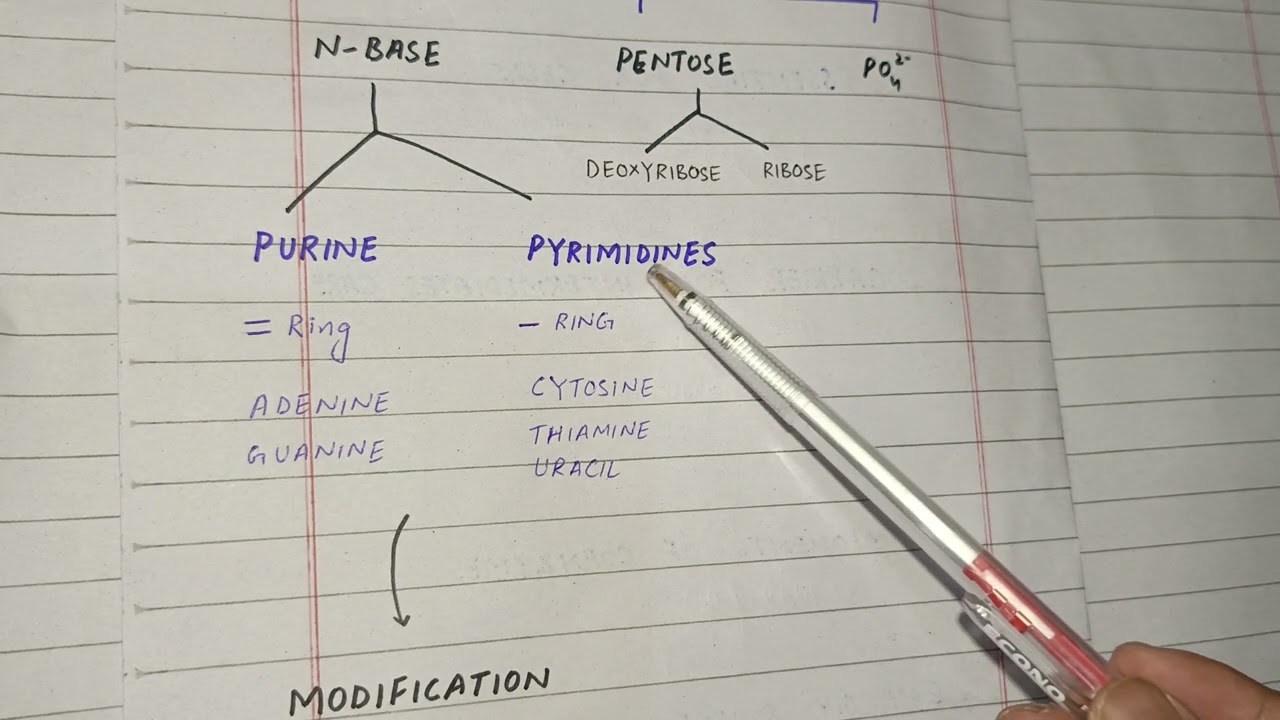 N-BASE PENTOSE PO₄²⁻
DEOXYRIBOSE RIBOSE
PURINE PYRIMIDINES
= Ring - RING
ADENINE CYTOSINE
GUANINE THIAMINE
URACIL
MODIFICATION
ECONO